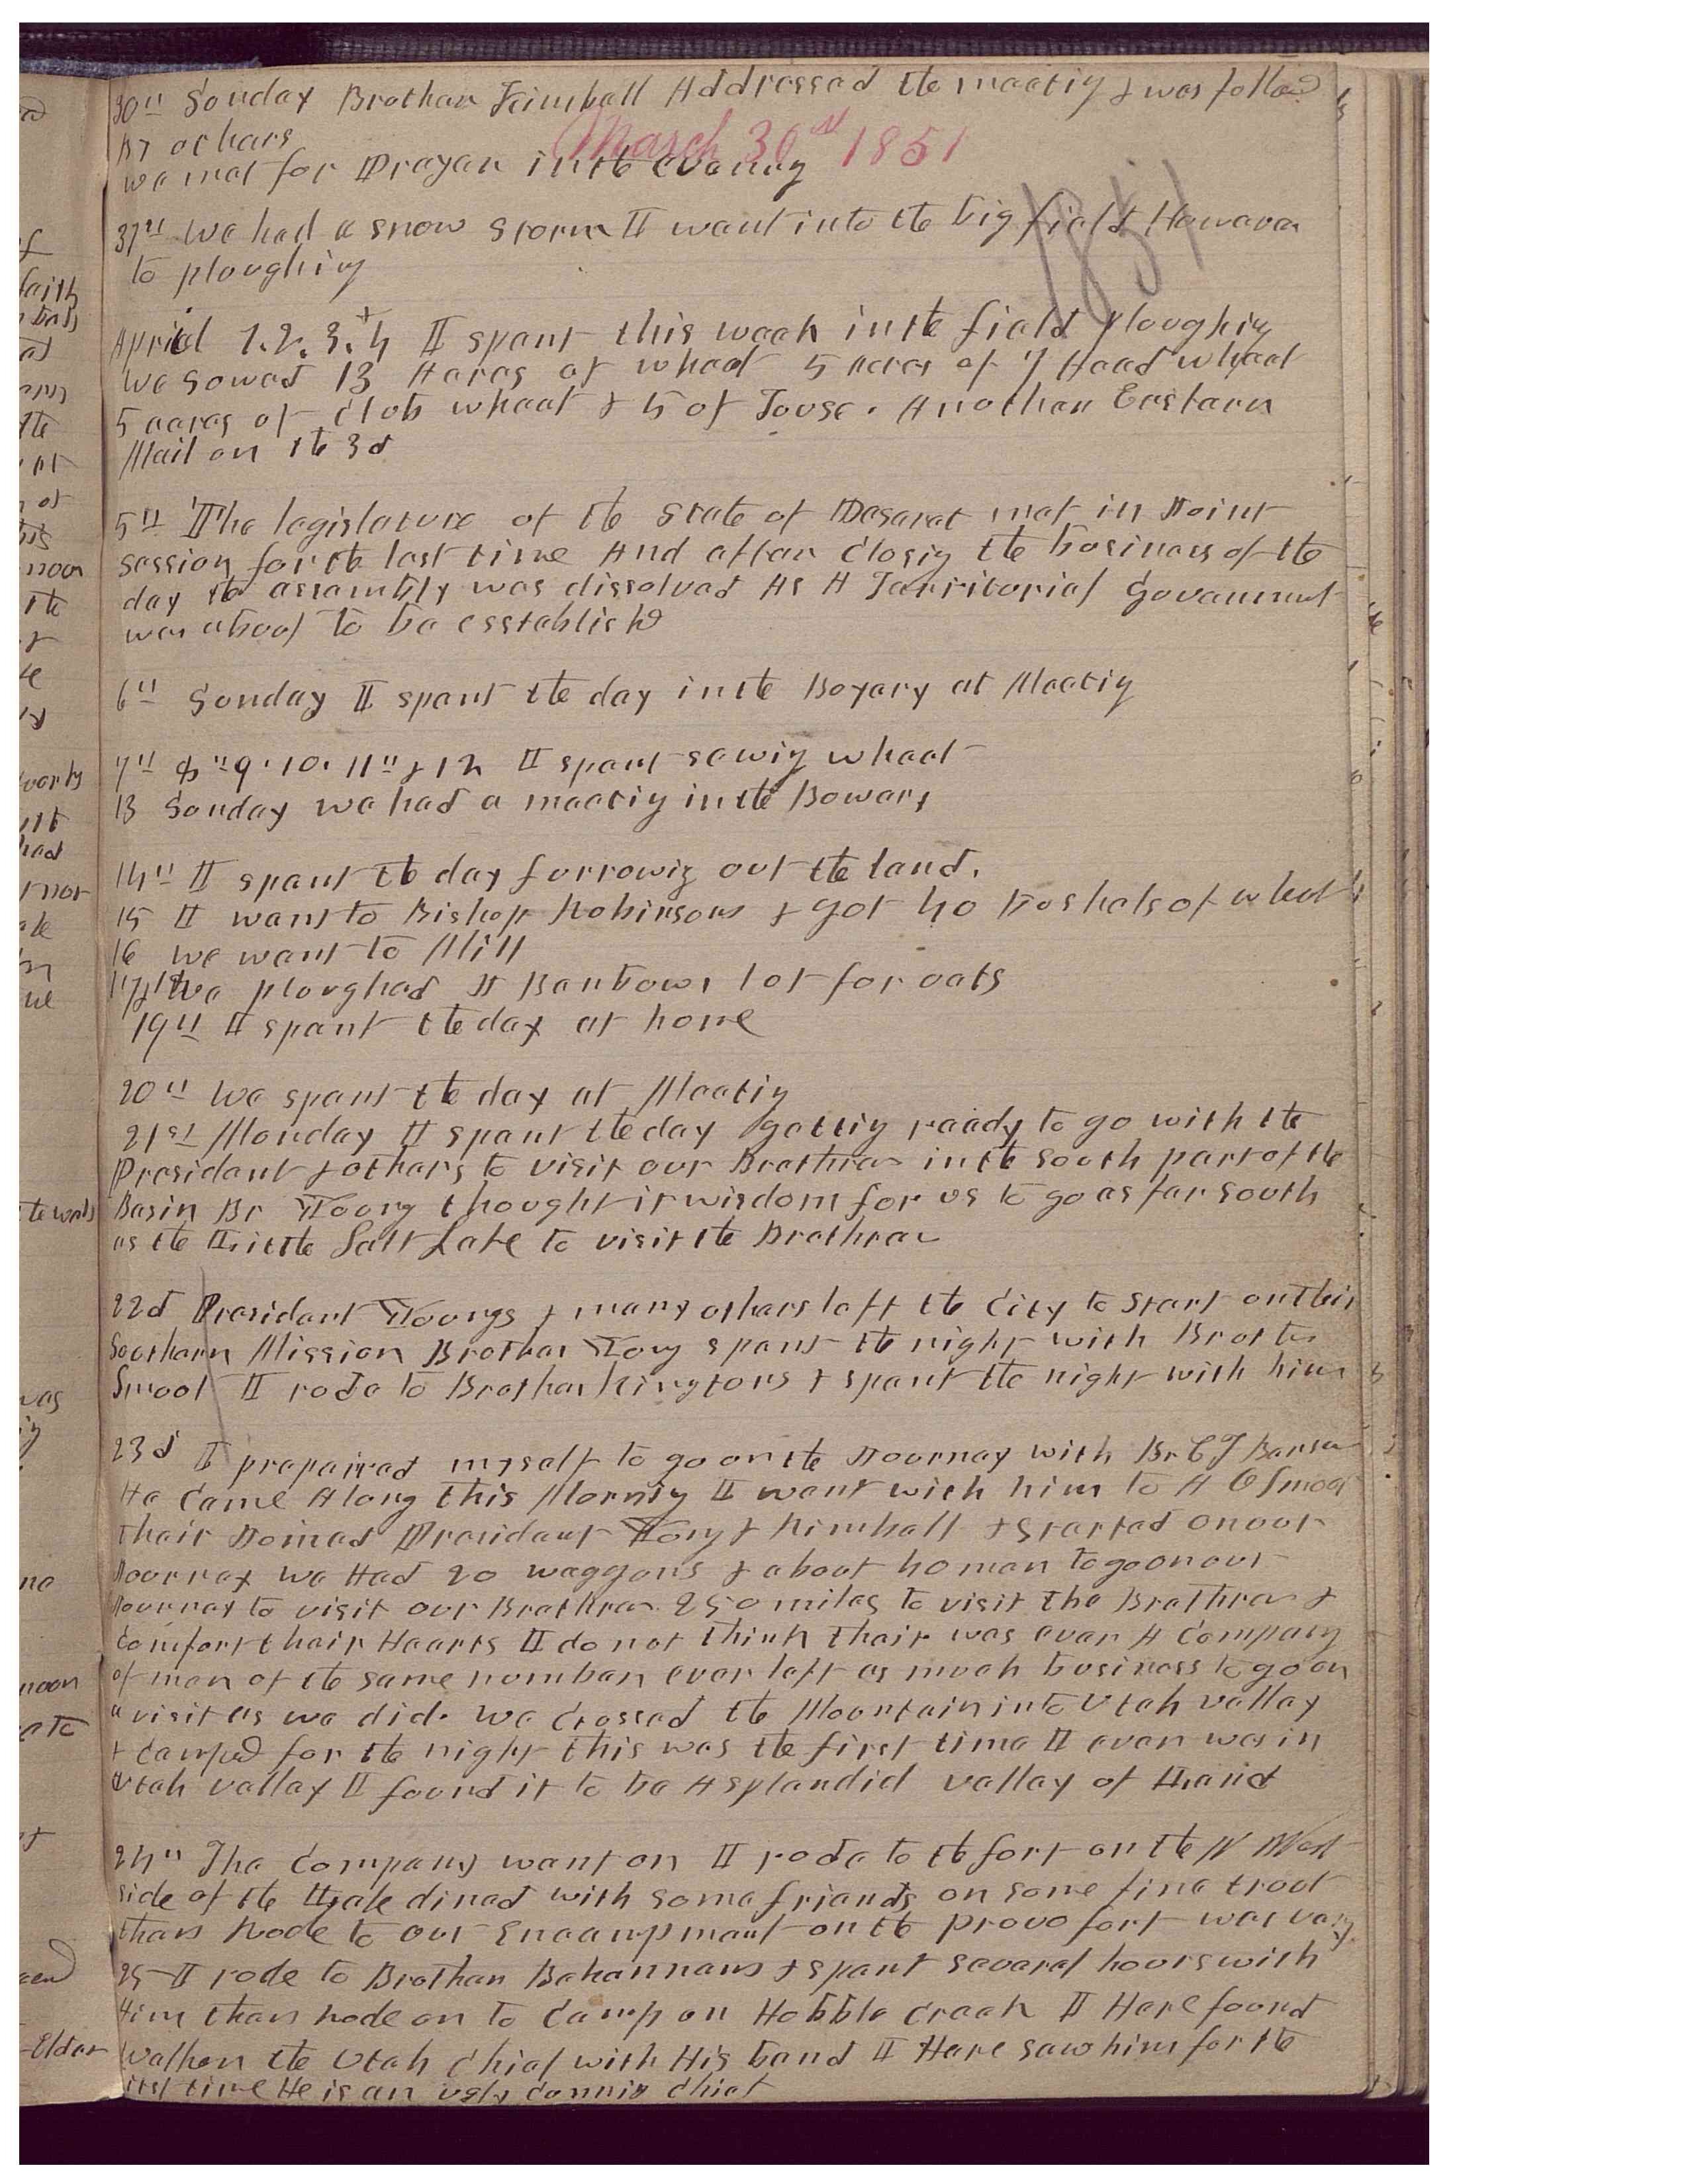 30th Sunday Brother Kimball Addressed the meeting & was followed
By others
March 30st 1851
we met for Prayer in the evening
1851
31st we had a snow storm I went into the big field However
to ploughing
April 1. 2. 3. + 4 I spent this week in the field ploughing
we sowed 13 Acres of wheat 5 acres of 7 Head wheat
5 acres of Club wheat & 5 of Touse. Another Eastern
Mail on the 3d
5th The legislature of the State of Deseret met in Joint
session for the last time And after closing the business of the
day the assembly was dissolved As A Territorial Government
was about to be esstablished
6th Sunday I spent the day in the Boyary at Meeting
7th 8th 9. 10. 11th & 12 I spent sowing wheat
13 Sunday we had a meeting in the Bowery
14th I spent the day furrowing out the land.
15 I went to Bishop Robinsons & got 40 bushels of wheat
16 we went to Mill
17 & 18 we ploughed J Benbows lot for oats
19th I spent the day at home
20th We spent the day at Meeting
21st Monday I spent the day getting ready to go with the
President & others to visit our Brethren in the South part of the
Basin Br Young thought it wisdom for us to go as far South
as the Little Salt Lake to visit the Brethren
22d President Youngs & many others left the City to start on their
Southern Mission Brother Young spent the night with Brother
Smoot I rode to Brother Kingtons & spent the night with him
23d I prepaired myself to go on the Journey with Br E T Benson
He came Along this Morning I went with him to A O Smoot
thair Joined President Young & Kimball & started on our
Journey we Had 20 waggons & about 40 men to go on our
Journey to visit our Brethren 250 miles to visit the Brethren &
comfort thair Hearts I do not think thair was ever A company
of men of the same number ever left as much business to go on
a visit as we did. We crossed the Mountain into Utah valley
& camped for the night this was the first time I ever was in
Utah valley I found it to be A splendid valley of Land
24th The company went on I rode to the fort on the N West
side of the Lake dined with some friends on some fine trout
then Rode to our Encampment on the provo fort was very
25 I rode to Brother Bohannans & spent several hours with
Him then rode on to camp on Hobble creek I Here found
Walker the Utah chief with His band I Here saw him for the
first time He is an ugly cunning chief